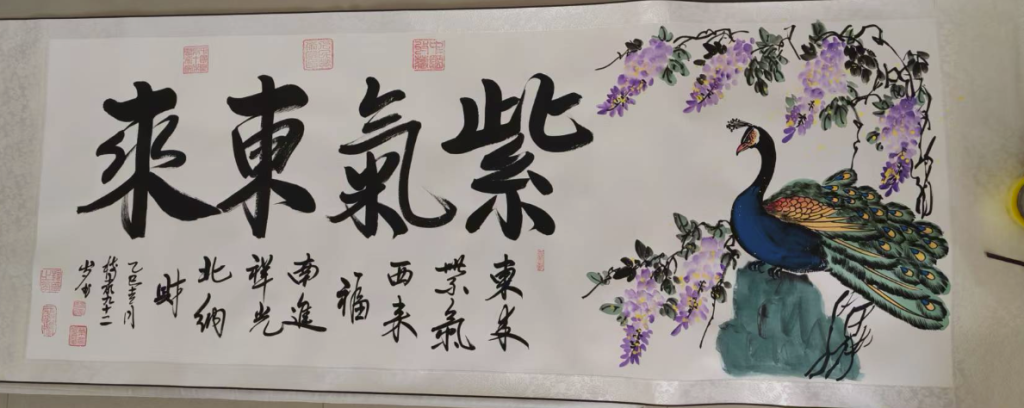 紫氣東來
東来
紫氣
西来
福
南進
祥光
北納
財
乙巳吉月
九十二